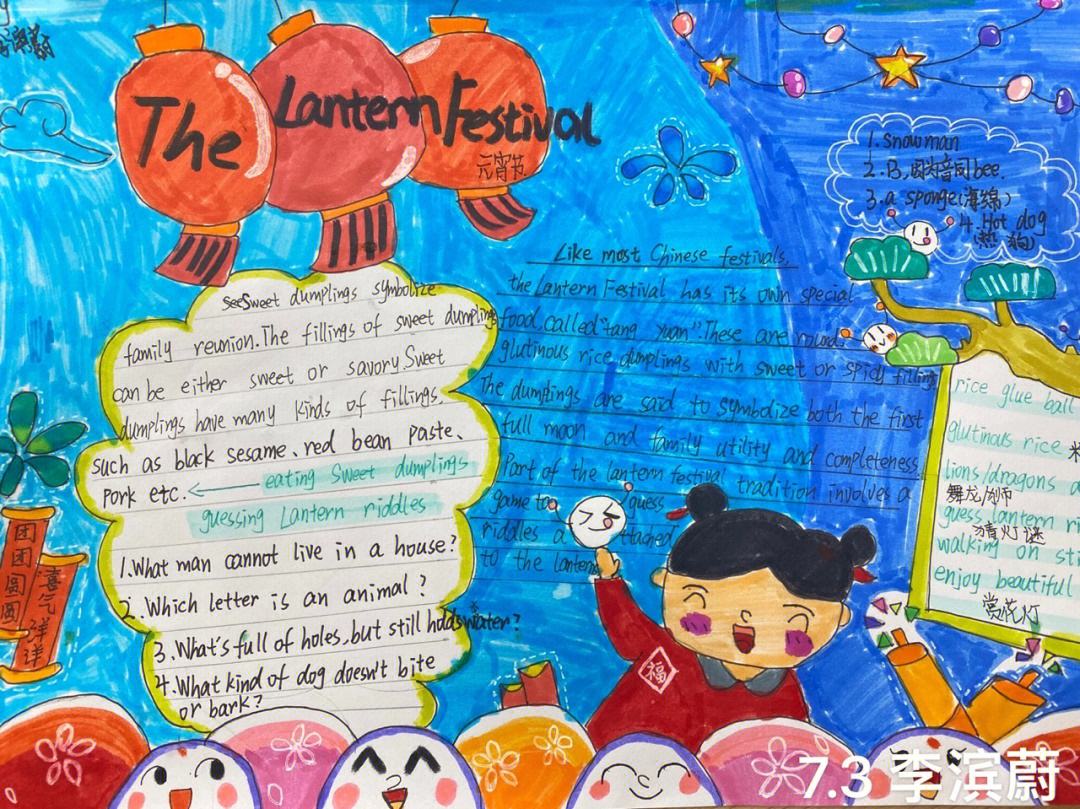 The Lantern Festival
元宵节
SeeSweet dumplings symbolize
family reunion. The fillings of sweet dumplings
can be either sweet or savory. Sweet
dumplings have many kinds of fillings,
such as black sesame, red bean paste、
pork etc. ← eating Sweet dumplings
guessing Lantern riddles
1. What man cannot live in a house?
2. Which letter is an animal?
3. What's full of holes, but still holds water?
4. What kind of dog doesn't bite
or bark?
Like most Chinese festivals,
the Lantern Festival has its own special
food, called "tang yuan". These are round
glutinous rice dumplings with sweet or spicy filling
The dumplings are said to symbolize both the first
full moon and family utility and completeness.
Part of the lantern festival tradition involves a
game to guess
riddles a ttached
to the lantern
1. snowman
2. B, 因为音同bee.
3. a sponge(海绵)
4. Hot dog
(热狗)
rice glue ball
glutinous rice 米
lions/dragons a
舞龙/狮
guess lantern ri
猜灯谜
walking on sti
enjoy beautiful
赏花灯
团团圆圆
喜气洋洋
福
7.3 李滨蔚